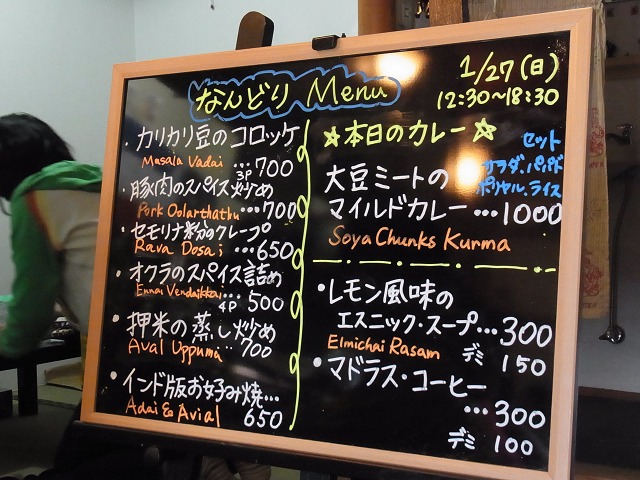 なんどり Menu
1/27(日)
12:30〜18:30
・カリカリ豆のコロッケ
Masala Vadai 3P 700
・豚肉のスパイス炒め
Pork Oolarthathu…700
・セモリナ粉のクレープ
Rava Dosai …650
・オクラのスパイス詰め
Ennai Vendaikkai… 4P 500
・押米の蒸し炒め
Aval Uppuma…700
・インド版お好み焼…
Adai & Avial 650
☆本日のカレー☆
セット
サラダ、パパド
ポリヤル、ライス
大豆ミートの
マイルドカレー…1000
Soya Chunks Kurma
・レモン風味の
エスニック・スープ…300
Elmichai Rasam デミ 150
・マドラス・コーヒー
…300
デミ 100